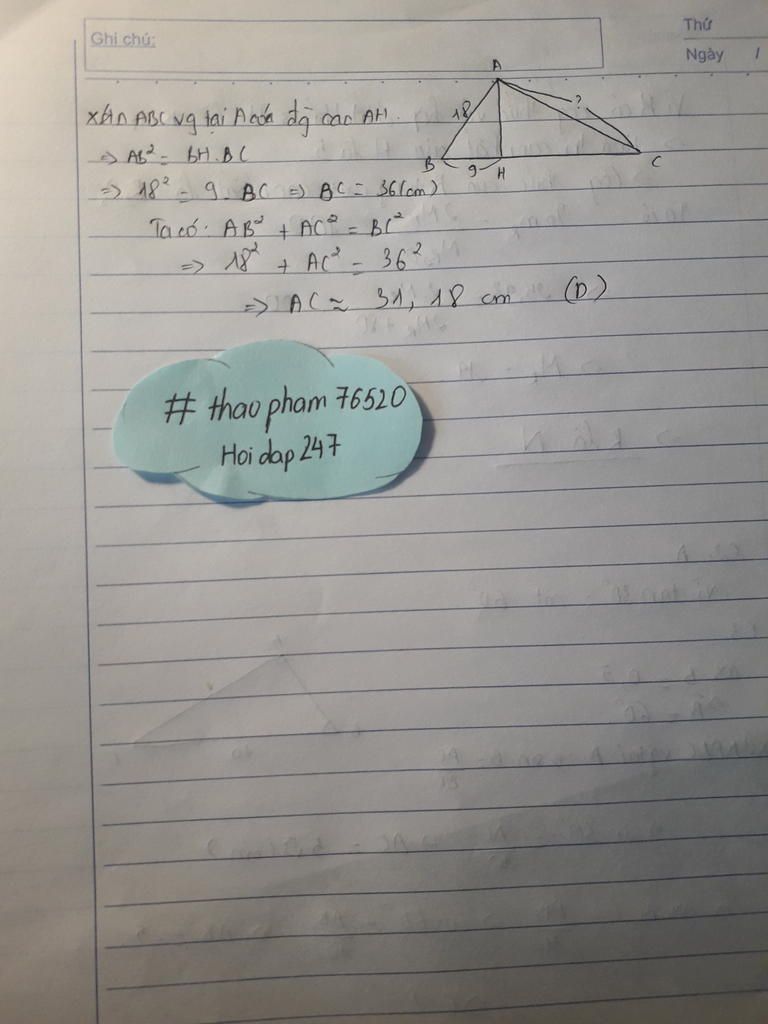 Ghi chú:
Thứ
Ngày /
xét Δ ABC vg tại A có đg cao AH.
=> AB² = BH.BC
=> 18² = 9.BC => BC = 36(cm)
Ta có: AB² + AC² = BC²
=> 18² + AC² = 36²
=> AC ≈ 31,18 cm (D)
A
18
?
B
9
H
C
# thao pham 76520
Hoi dap 247